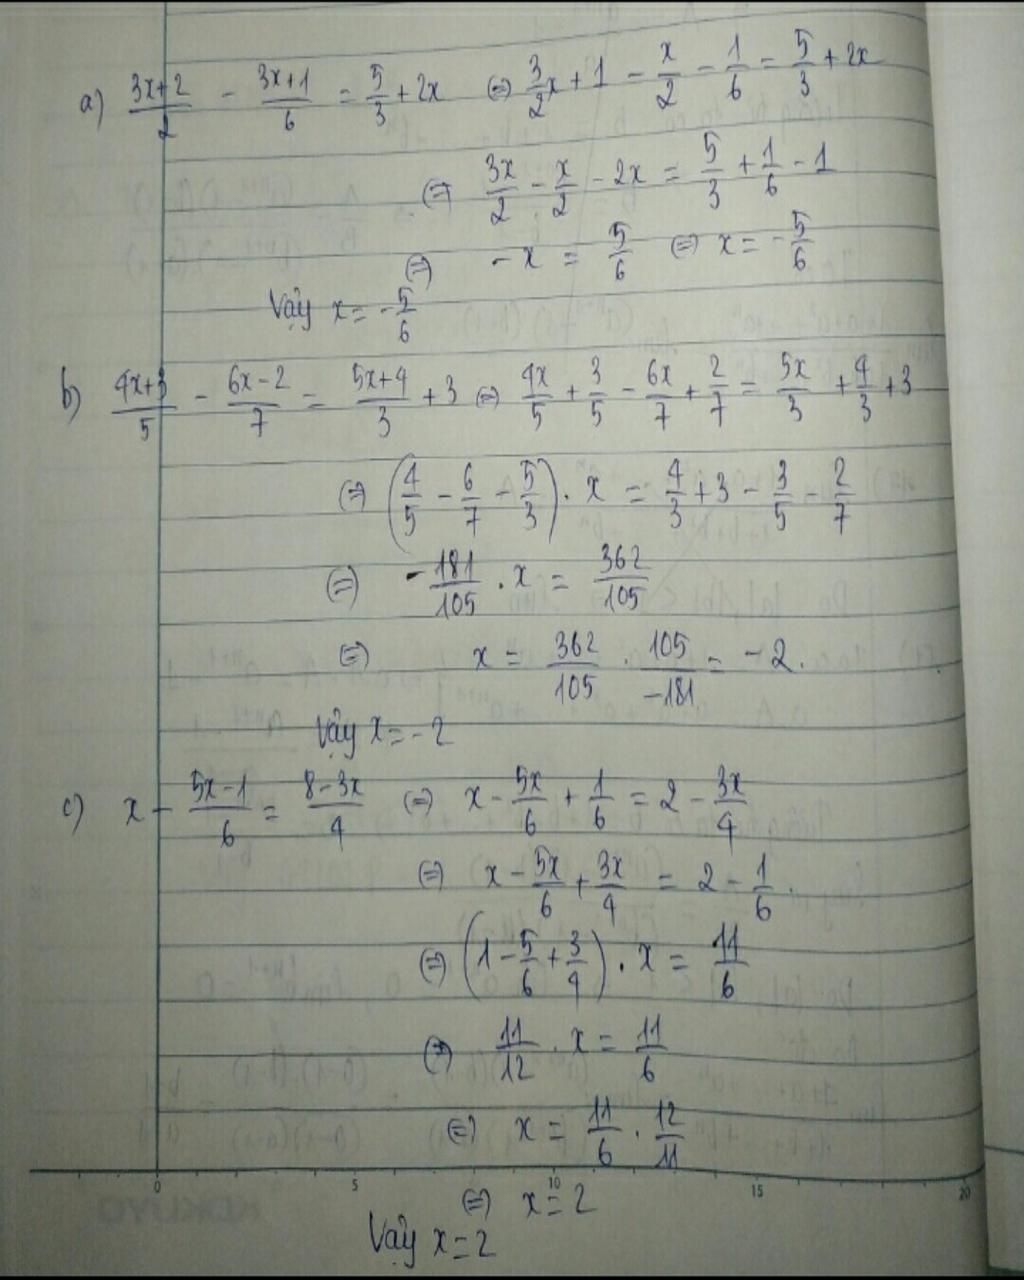 a) (3x+2)/2 - (3x+1)/6 = 5/3 + 2x ⇔ 3/2x + 1 - x/2 - 1/6 = 5/3 + 2x
⇔ 3x/2 - x/2 - 2x = 5/3 + 1/6 - 1
⇔ -x = 5/6 ⇔ x = -5/6
Vậy x = -5/6
b) (4x+3)/5 - (6x-2)/7 = (5x+4)/3 + 3 ⇔ 4x/5 + 3/5 - 6x/7 + 2/7 = 5x/3 + 4/3 + 3
⇔ (4/5 - 6/7 - 5/3) . x = 4/3 + 3 - 3/5 - 2/7
⇔ -181/105 . x = 362/105
⇔ x = 362/105 . 105/-181 = -2.
Vậy x = -2
c) x - (5x-1)/6 = (8-3x)/4 ⇔ x - 5x/6 + 1/6 = 2 - 3x/4
⇔ x - 5x/6 + 3x/4 = 2 - 1/6.
⇔ (1 - 5/6 + 3/4) . x = 11/6
⇔ 11/12 . x = 11/6
⇔ x = 11/6 . 12/11
0 5 10 15 20
⇔ x = 2
Vậy x = 2